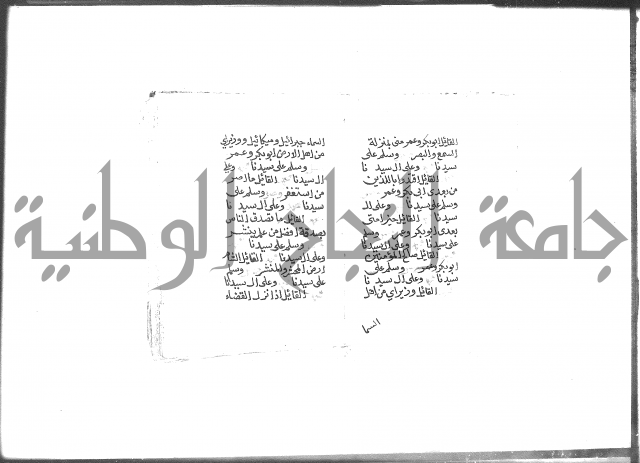 القائل ابوبكر وعمر منى بمنزلة
السمع والبصر وسلم على
سيدنا وعلى ال سيدنا
القائل اقتدوا بالذين
من بعدى ابى بكر وعمر
وسلم على سيدنا وعلى ال
سيدنا القائل خير امتى
بعدى ابوبكر وعمر وسلم
على سيدنا وعلى ال سيدنا
القائل صالح المؤمنين
ابوبكر وعمر وسلم على
سيدنا وعلى ال سيدنا
القائل وزيراي من اهل
السما
السماء جبرائيل وميكائيل ووزيراي
من اهل الارض ابوبكر وعمر
وسلم على سيدنا وعلى
ال سيدنا القائل ما اصر
من استغفر وسلم على
سيدنا وعلى ال سيدنا
القائل ما تصدق الناس
بصدقة افضل من علم ينشر
وسلم على سيدنا
وعلى ال سيدنا القائل الشام
ارض المحشر والمنشر وسلم
على سيدنا وعلى ال سيدنا
القائل اذا نزل القضاء
جامعة النجاح الوطنية